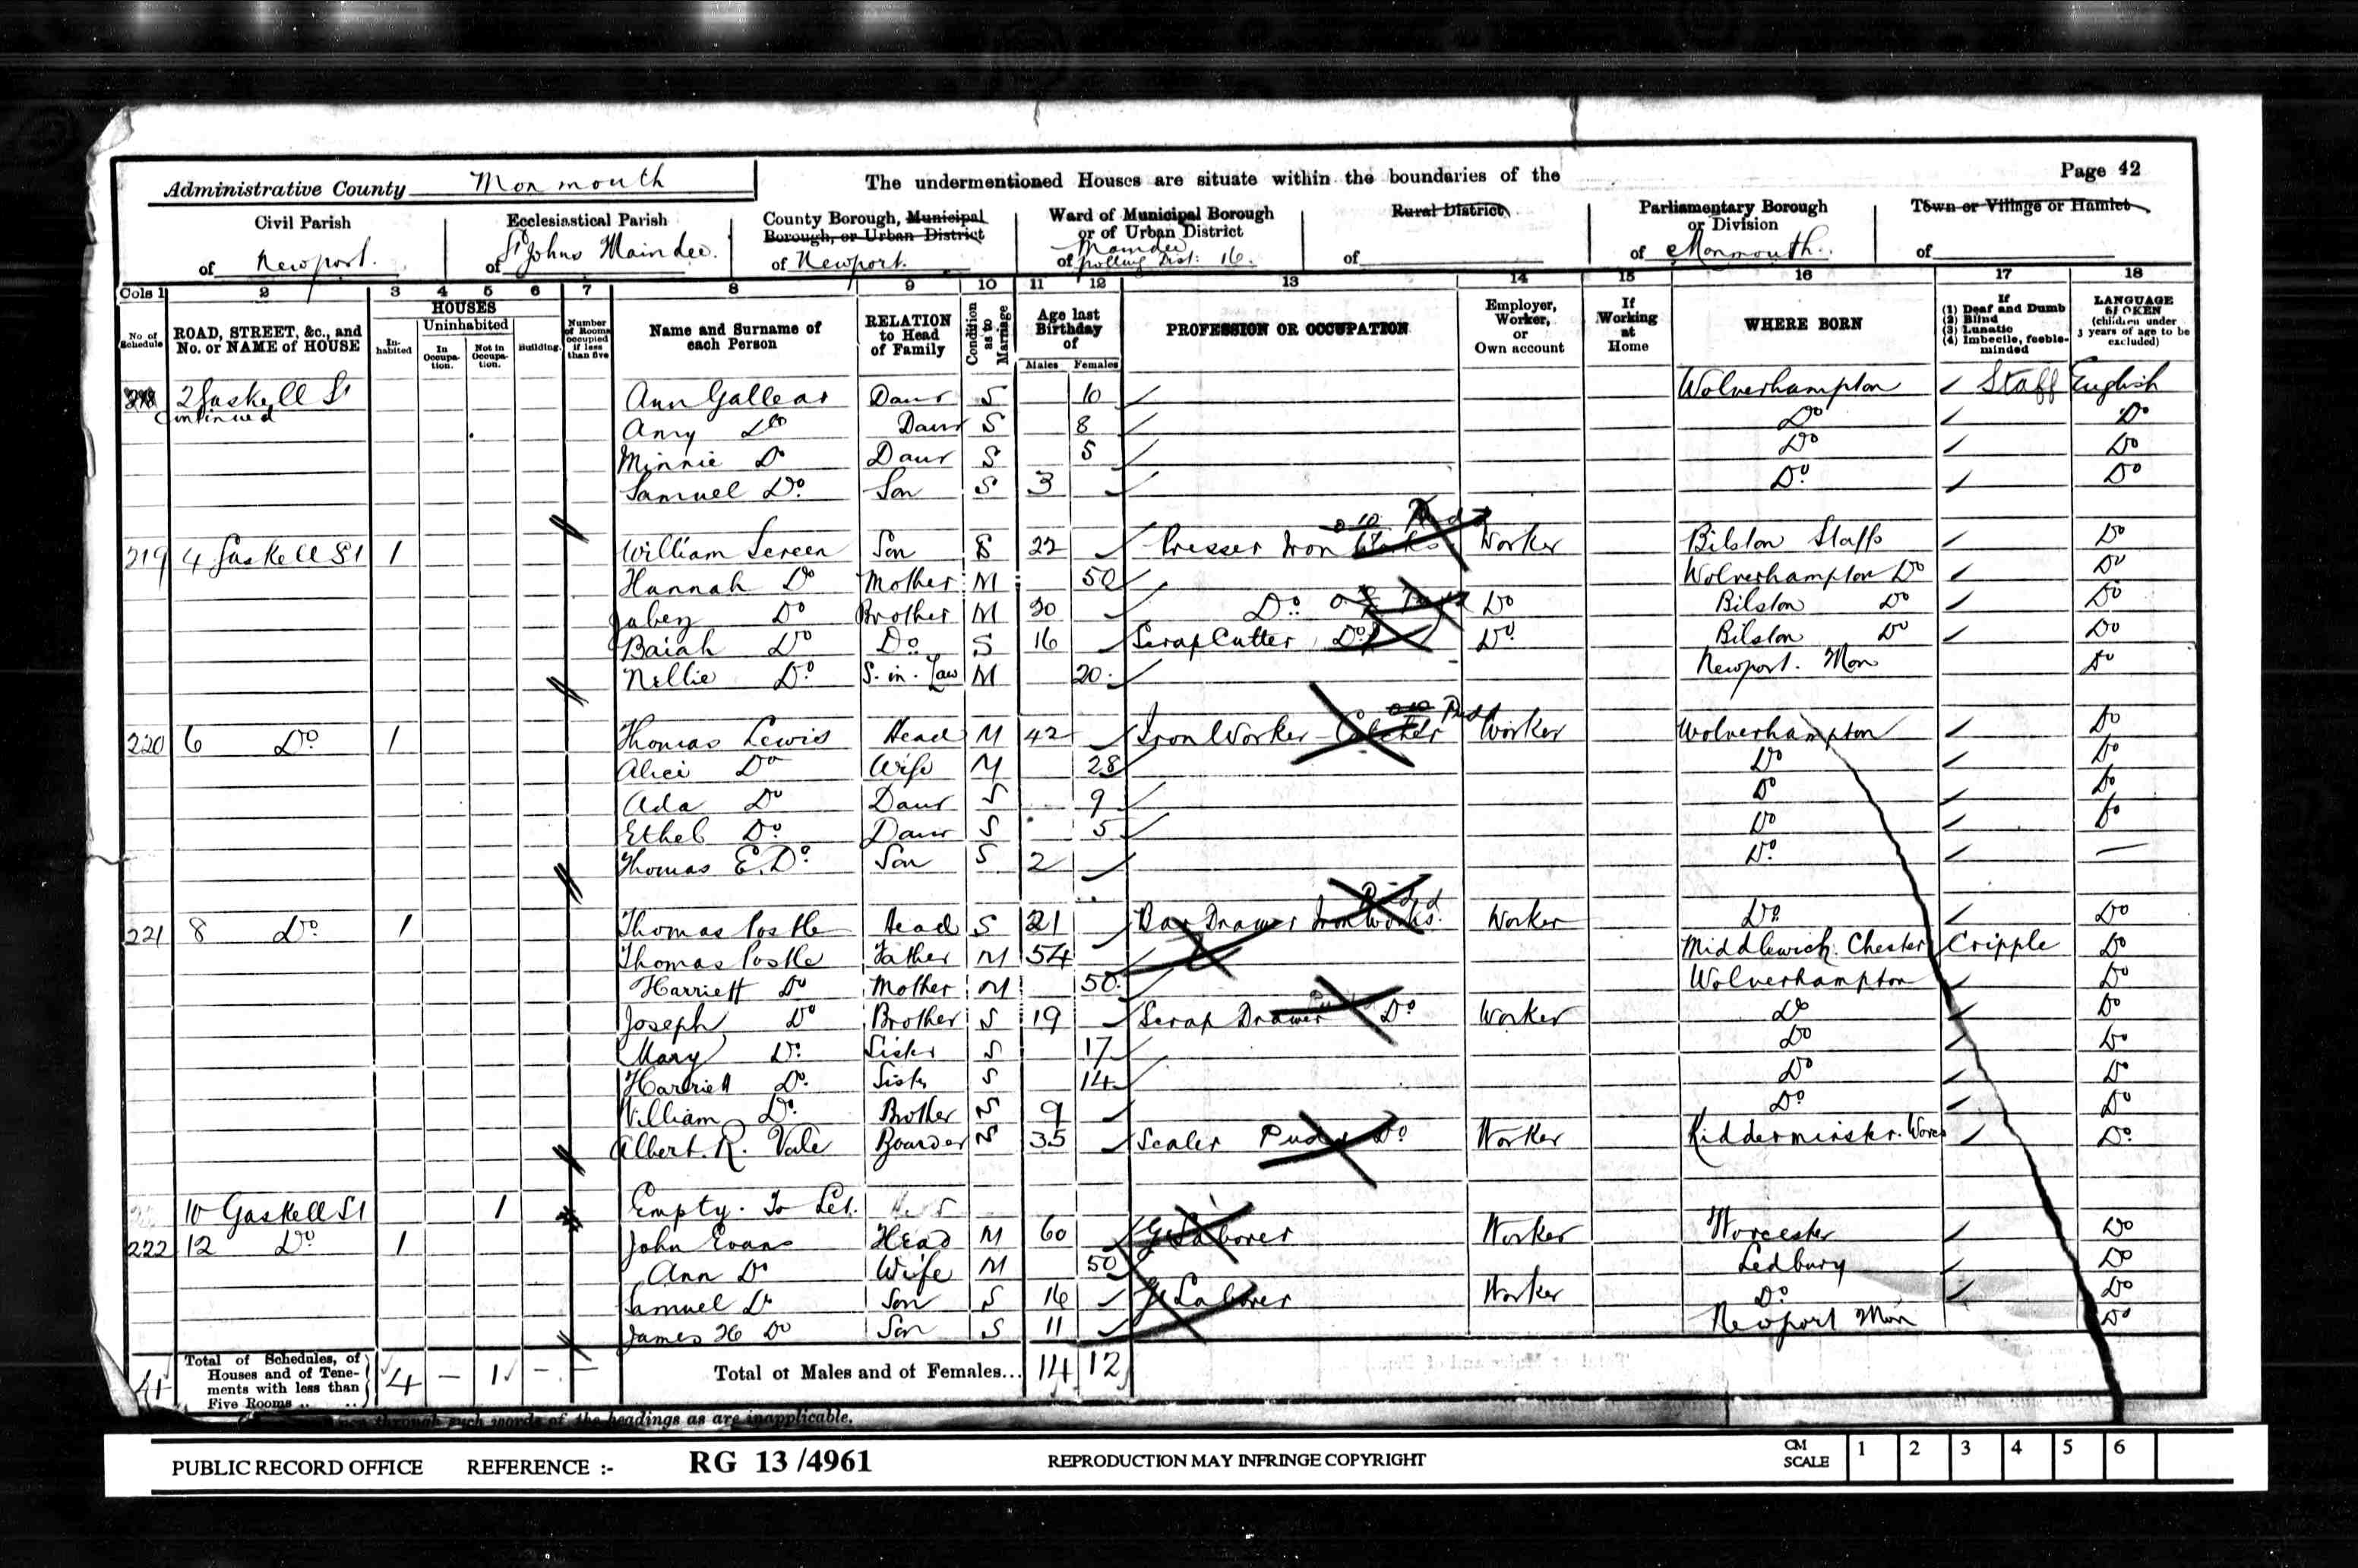 Page 42
Administrative County Monmouth
The undermentioned Houses are situate within the boundaries of the
Civil Parish of Newport.
Ecclesiastical Parish of St Johns Maindee.
County Borough, Municipal Borough, or Urban District of Newport.
Ward of Municipal Borough or of Urban District of Maindee polling Dist: 16.
Rural District of
Parliamentary Borough or Division of Monmouth.
Town or Village or Hamlet of
Cols 1 2 3 4 5 6 7 8 9 10 11 12 13 14 15 16 17 18
No of Schedule
ROAD, STREET, &c., and No. or NAME of HOUSE
HOUSES
Inhabited
Uninhabited
In Occupation.
Not in Occupation.
Building.
Number of Rooms occupied if less than five
Name and Surname of each Person
RELATION to Head of Family
Condition as to Marriage
Age last Birthday of
Males Females
PROFESSION OR OCCUPATION
Employer, Worker, or Own account
If Working at Home
WHERE BORN
If (1) Deaf and Dumb (2) Blind (3) Lunatic (4) Imbecile, feeble-minded
LANGUAGE SPOKEN (children under 3 years of age to be excluded)
218 2 Gaskell St Ann Gallear Daur S 10 Wolverhampton Staff English
Continued Amy Do Daur S 8 Do Do
Minnie Do Daur S 5 Do Do
Samuel Do. Son S 3 Do. Do
219 4 Gaskell St 1 William Screen Son S 22 Presser Iron Works Worker Bilston Staffs Do
Hannah Do Mother M 50 Wolverhampton Do Do
Jabez Do Brother M 30 Do. Do Bilston Do Do
Do Do. S 16 Scrap Cutter Do. Do. Bilston Do Do
Nellie Do. S. in. Law M 20. Newport. Mon Do
220 6 Do. 1 Thomas Lewis Head M 42 Iron Worker Catcher Worker Wolverhampton Do
Alice Do Wife M 28 Do Do
Ada Do Daur S 9 Do Do
Ethel Do. Daur S 5 Do Do
Thomas E. Do. Son S 2 Do. —
221 8 Do. 1 Thomas Postle Head S 21 Bar Drawer Iron Works. Worker Do. Do
Thomas Postle Father M 54 Middlewich. Chester Cripple Do
Harriett Do Mother M 50. Wolverhampton Do
Joseph Do Brother S 19 Scrap Drawer Do Worker Do Do
Mary Do. Sister S 17 Do Do
Harriett Do. Sister S 14 Do Do
William Do. Brother S 9 Do. Do
Albert. R. Vale Boarder S 35 Scaler Pud Do Worker Kidderminster. Worces Do.
10 Gaskell St 1 Empty. To Let.
222 12 Do. 1 John Evans Head M 60 G Laborer Worker Worcester Do
Ann Do Wife M 50 Ledbury Do
Samuel Do Son S 16 G Laborer Worker Do. Do
James H Do Son S 11 Newport Mon Do
4 Total of Schedules, of Houses and of Tenements with less than Five Rooms 4 — 1 — — Total of Males and of Females... 14 12
through such words of the headings as are inapplicable.
PUBLIC RECORD OFFICE REFERENCE :- RG 13 /4961 REPRODUCTION MAY INFRINGE COPYRIGHT CM SCALE 1 2 3 4 5 6